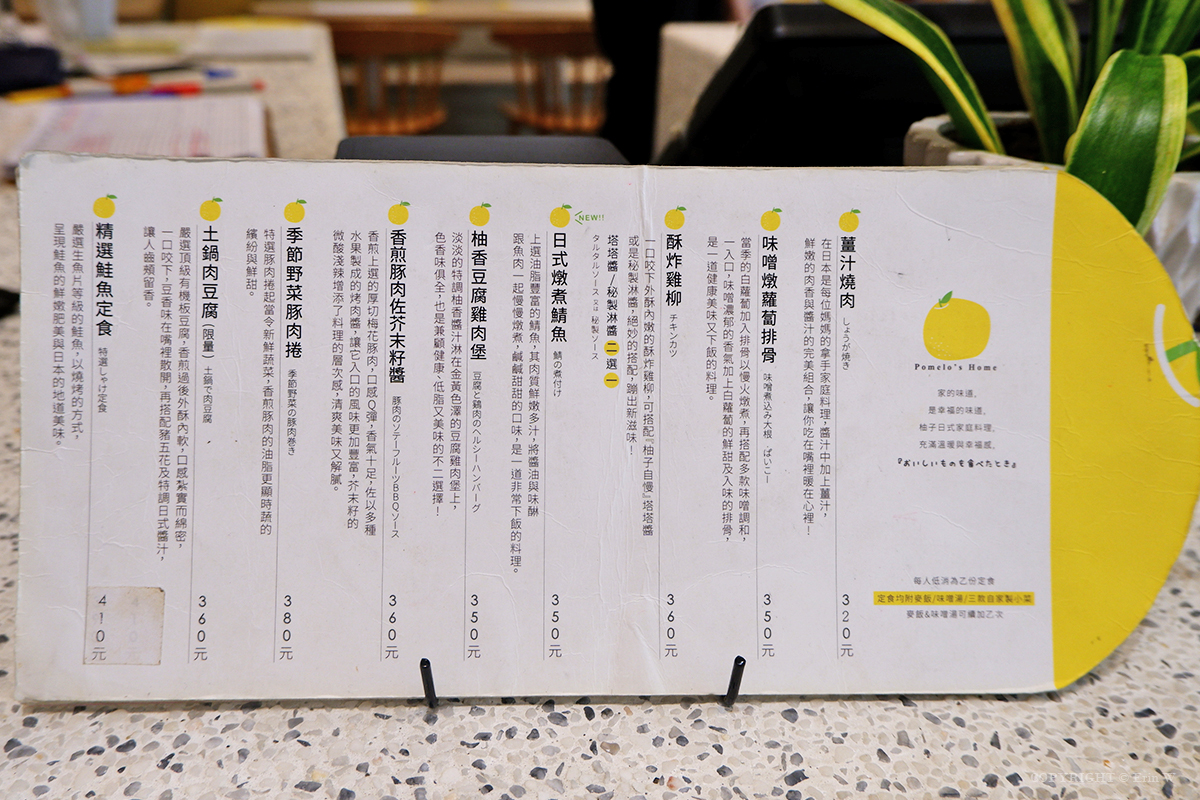 Pomelo's Home
家的味道,
是幸福的味道,
柚子日式家庭料理,
充滿溫暖與幸福感。
『おいしいものを食べたとき』
每人低消為乙份定食
定食均附麥飯/味噌湯/三款自家製小菜
麥飯&味噌湯可續加乙次
薑汁燒肉 しょうが焼き
320元
在日本是每位媽媽的拿手家庭料理,醬汁中加上薑汁,
鮮嫩的肉香與醬汁的完美組合,讓你吃在嘴裡暖在心裡!
味噌燉蘿蔔排骨 味噌煮込み大根、ぱいこー
350元
當季的白蘿蔔加入排骨以慢火燉煮,再搭配多款味噌調和,
一入口,味噌濃郁的香氣加上白蘿蔔的鮮甜及入味的排骨,
是一道健康美味又下飯的料理。
酥炸雞柳 チキンカツ
360元
一口咬下外酥內嫩的酥炸雞柳,可搭配『柚子自慢』塔塔醬
或是秘製淋醬,絕妙的搭配,蹦出新滋味!
塔塔醬/秘製淋醬 二選一
タルタルソース 又は 秘製ソース
NEW!!
日式燉煮鯖魚 鯖の煮付け
350元
上選油脂豐富的鯖魚,其肉質鮮嫩多汁,將醬油與味醂
跟魚肉一起慢慢燉煮,鹹鹹甜甜的口味,是一道非常下飯的料理。
柚香豆腐雞肉堡 豆腐と鶏肉のヘルシーハンバーグ
350元
淡淡的特調柚香醬汁淋在金黃色澤的豆腐雞肉堡上,
色香味俱全,也是兼顧健康、低脂又美味的不二選擇!
香煎豚肉佐芥末籽醬 豚肉のソテーフルーツBBQソース
360元
香煎上選的厚切梅花豚肉,口感Q彈,香氣十足,佐以多種
水果製成的烤肉醬,讓它入口的風味更加豐富,芥末籽的
微酸淺辣增添了料理的層次感,清爽美味又解膩。
季節野菜豚肉捲 季節野菜の豚肉巻き
380元
特選豚肉捲起當令新鮮蔬菜,香煎豚肉的油脂更顯時蔬的
繽紛與鮮甜。
土鍋肉豆腐(限量) 土鍋で肉豆腐
360元
嚴選頂級有機板豆腐,香煎過後外酥內軟,口感紮實而綿密,
一口咬下,豆香味在嘴裡散開,再搭配豬五花及特調日式醬汁,
讓人齒頰留香。
精選鮭魚定食 特選しゃけ定食
410元
嚴選生魚片等級的鮭魚,以燒烤的方式,
呈現鮭魚的鮮嫩肥美與日本的地道美味。
COPYRIGHT © Erin W